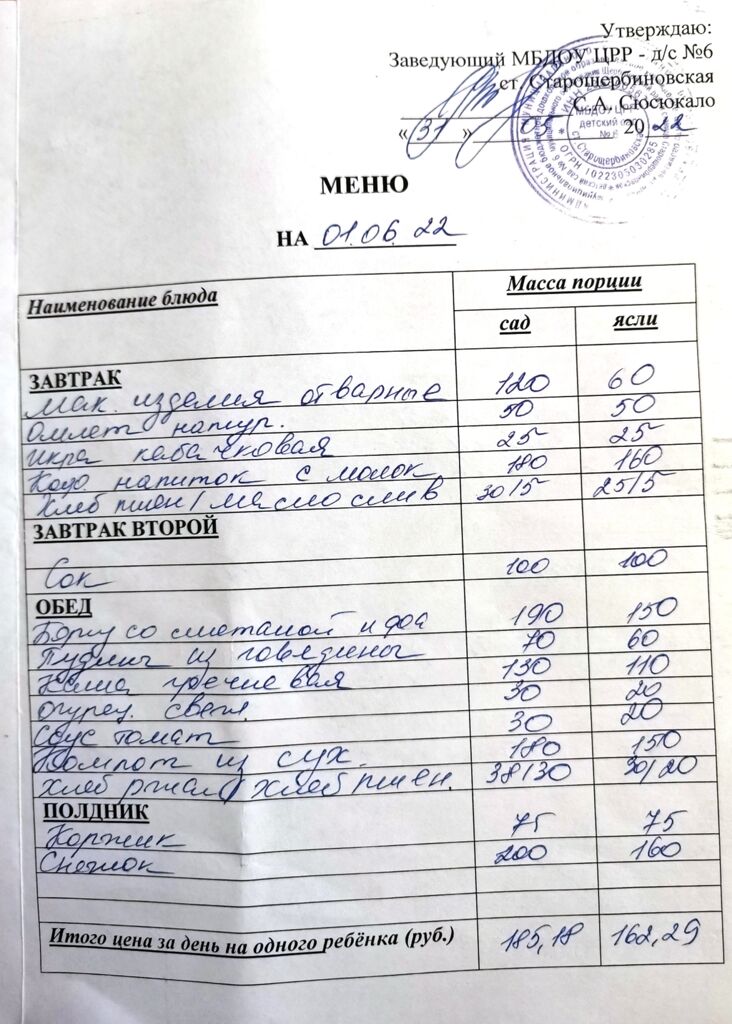 Утверждаю:
Заведующий МБДОУ ЦРР - д/с №6
ст. Старощербиновская
С.А. Сюсюкало
« 31 » 05 20 22
МЕНЮ
НА 01.06.22
Наименование блюда Масса порции
сад ясли
ЗАВТРАК
Мак. изделия отварные 120 60
Омлет натур. 50 50
Икра кабачковая 25 25
напиток с молок 180 160
Хлеб пшен/масло слив 30/5 25/5
ЗАВТРАК ВТОРОЙ
Сок 100 100
ОБЕД
Борщ со сметаной и 190 150
Пудинг из говядины 70 60
Каша гречневая 130 110
огурец свеж. 30 20
Соус томат 30 20
Компот из сух. 180 150
Хлеб ржан/хлеб пшен. 38/30 30/20
ПОЛДНИК
Коржик 75 75
Снежок 200 160
Итого цена за день на одного ребёнка (руб.) 185,18 162,29